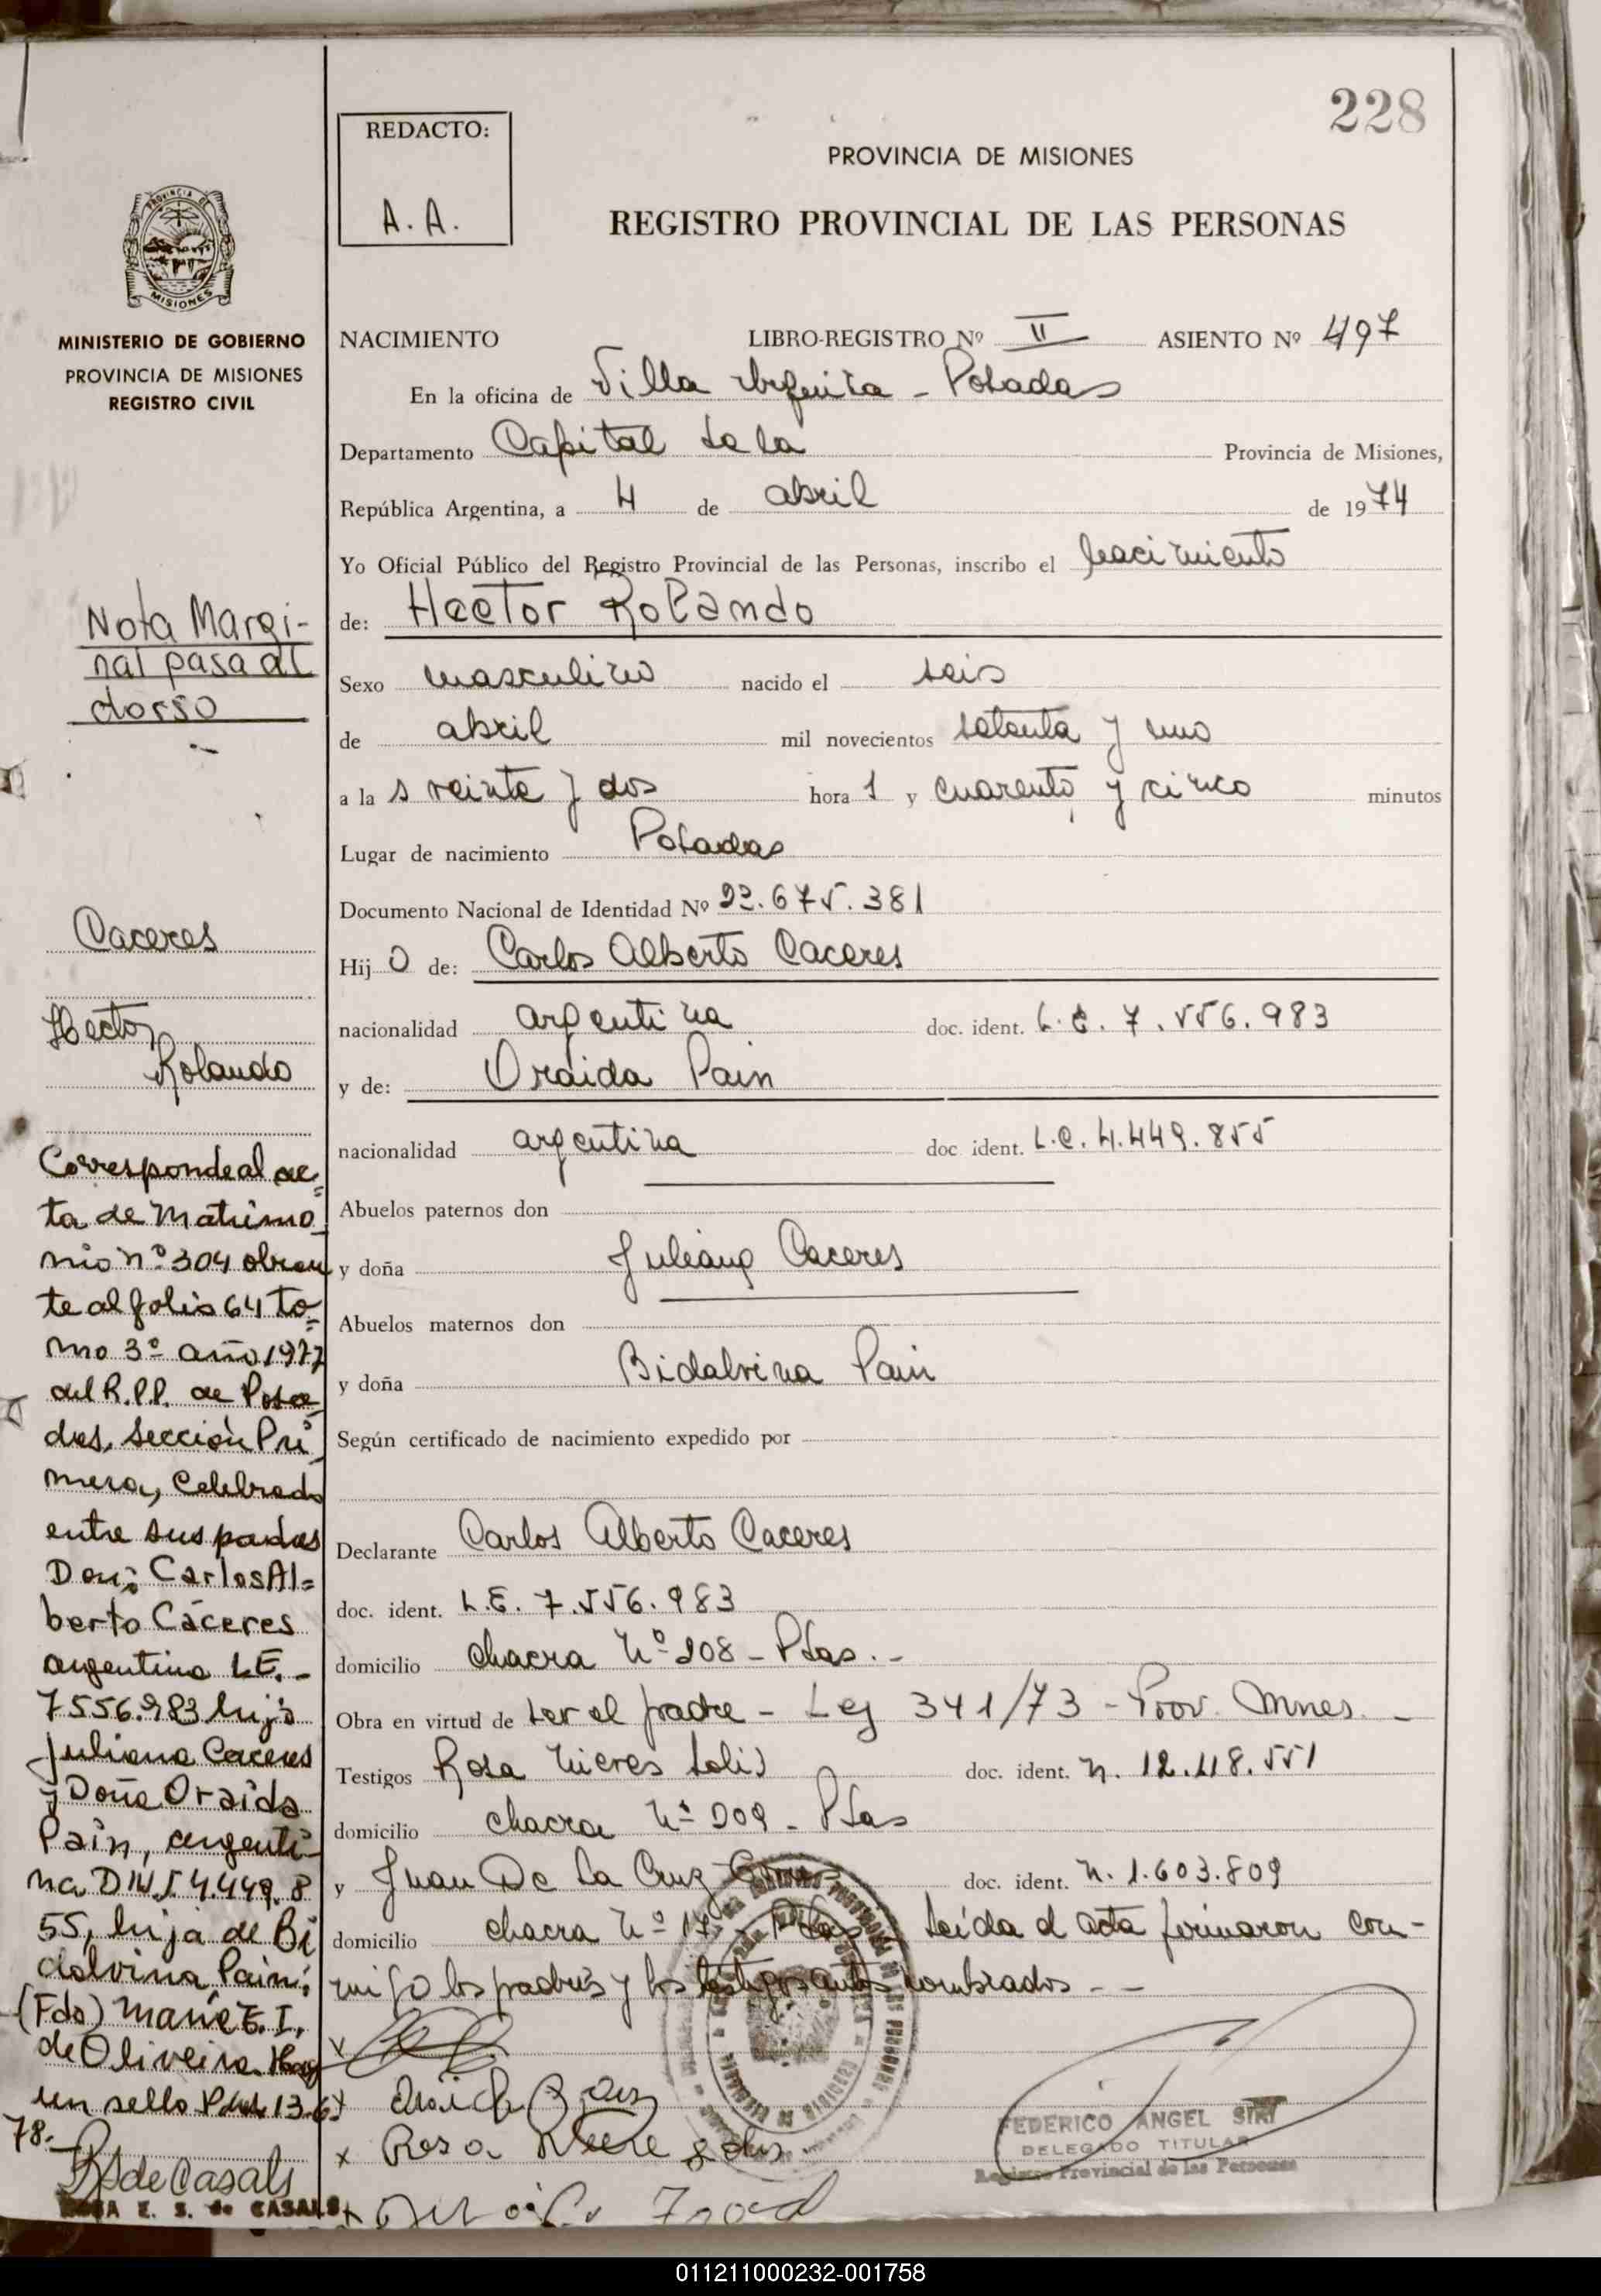 228
REDACTO:
A. A.
PROVINCIA DE MISIONES
REGISTRO PROVINCIAL DE LAS PERSONAS
PROVINCIA DE
MISIONES
MINISTERIO DE GOBIERNO
PROVINCIA DE MISIONES
REGISTRO CIVIL
NACIMIENTO LIBRO-REGISTRO Nº II ASIENTO Nº 497
En la oficina de Villa Urquiza - Posadas
Departamento Capital de la Provincia de Misiones,
República Argentina, a 4 de abril de 1974
Yo Oficial Público del Registro Provincial de las Personas, inscribo el nacimiento
de: Hector Rolando
Sexo masculino nacido el seis
de abril mil novecientos setenta y uno
a la s veinte y dos hora s y cuarenta y cinco minutos
Lugar de nacimiento Posadas
Documento Nacional de Identidad Nº 22.675.381
Hij o de: Carlos Alberto Caceres
nacionalidad argentina doc. ident. L.E. 7.556.983
y de: Oraida Pain
nacionalidad argentina doc ident. L.C. 4.449.855
Abuelos paternos don
y doña Juliana Caceres
Abuelos maternos don
y doña Bidalvina Pain
Según certificado de nacimiento expedido por
Declarante Carlos Alberto Caceres
doc. ident. L.E. 7.556.983
domicilio chacra Nº 208 - Pdas. -
Obra en virtud de ser el padre - Ley 341/73 - Prov. Mnes. -
Testigos Rosa Nieres Solis doc. ident. n. 12.118.551
domicilio chacra Nº 209 - Pdas
y Juan De La Cruz doc. ident. n. 1.603.809
domicilio chacra Nº 17 Pdas Leída el acta firmaron con-
migo los padres y los testigos antes nombrados - -
x
x
x Rosa
x
FEDERICO ANGEL SIRI
DELEGADO TITULAR
Registro Provincial de las Personas
Nota Margi-
nal pasa al
dorso
Caceres
Hector
Rolando
Corresponde al ac=
ta de Matrimo
nio nº 304 obran
te al folio 64 to=
mo 3º año 1977
del R.P.P. de Posa
das, Sección Pri
mera, Celebrado
entre sus padres
Don; Carlos Al=
berto Cáceres
argentino L.E. -
7556.983 hijo
Juliana Caceres
y Doña Oraida
Pain, argenti
na D.N.I 4.449.8
55, hija de Bi
dalvina Pain;
(Fdo) Maria E. I.
de Oliveira Hay
un sello Pdas 13-6
78.-
RS de Casals
ROSA E. S. de CASALS
011211000232-001758